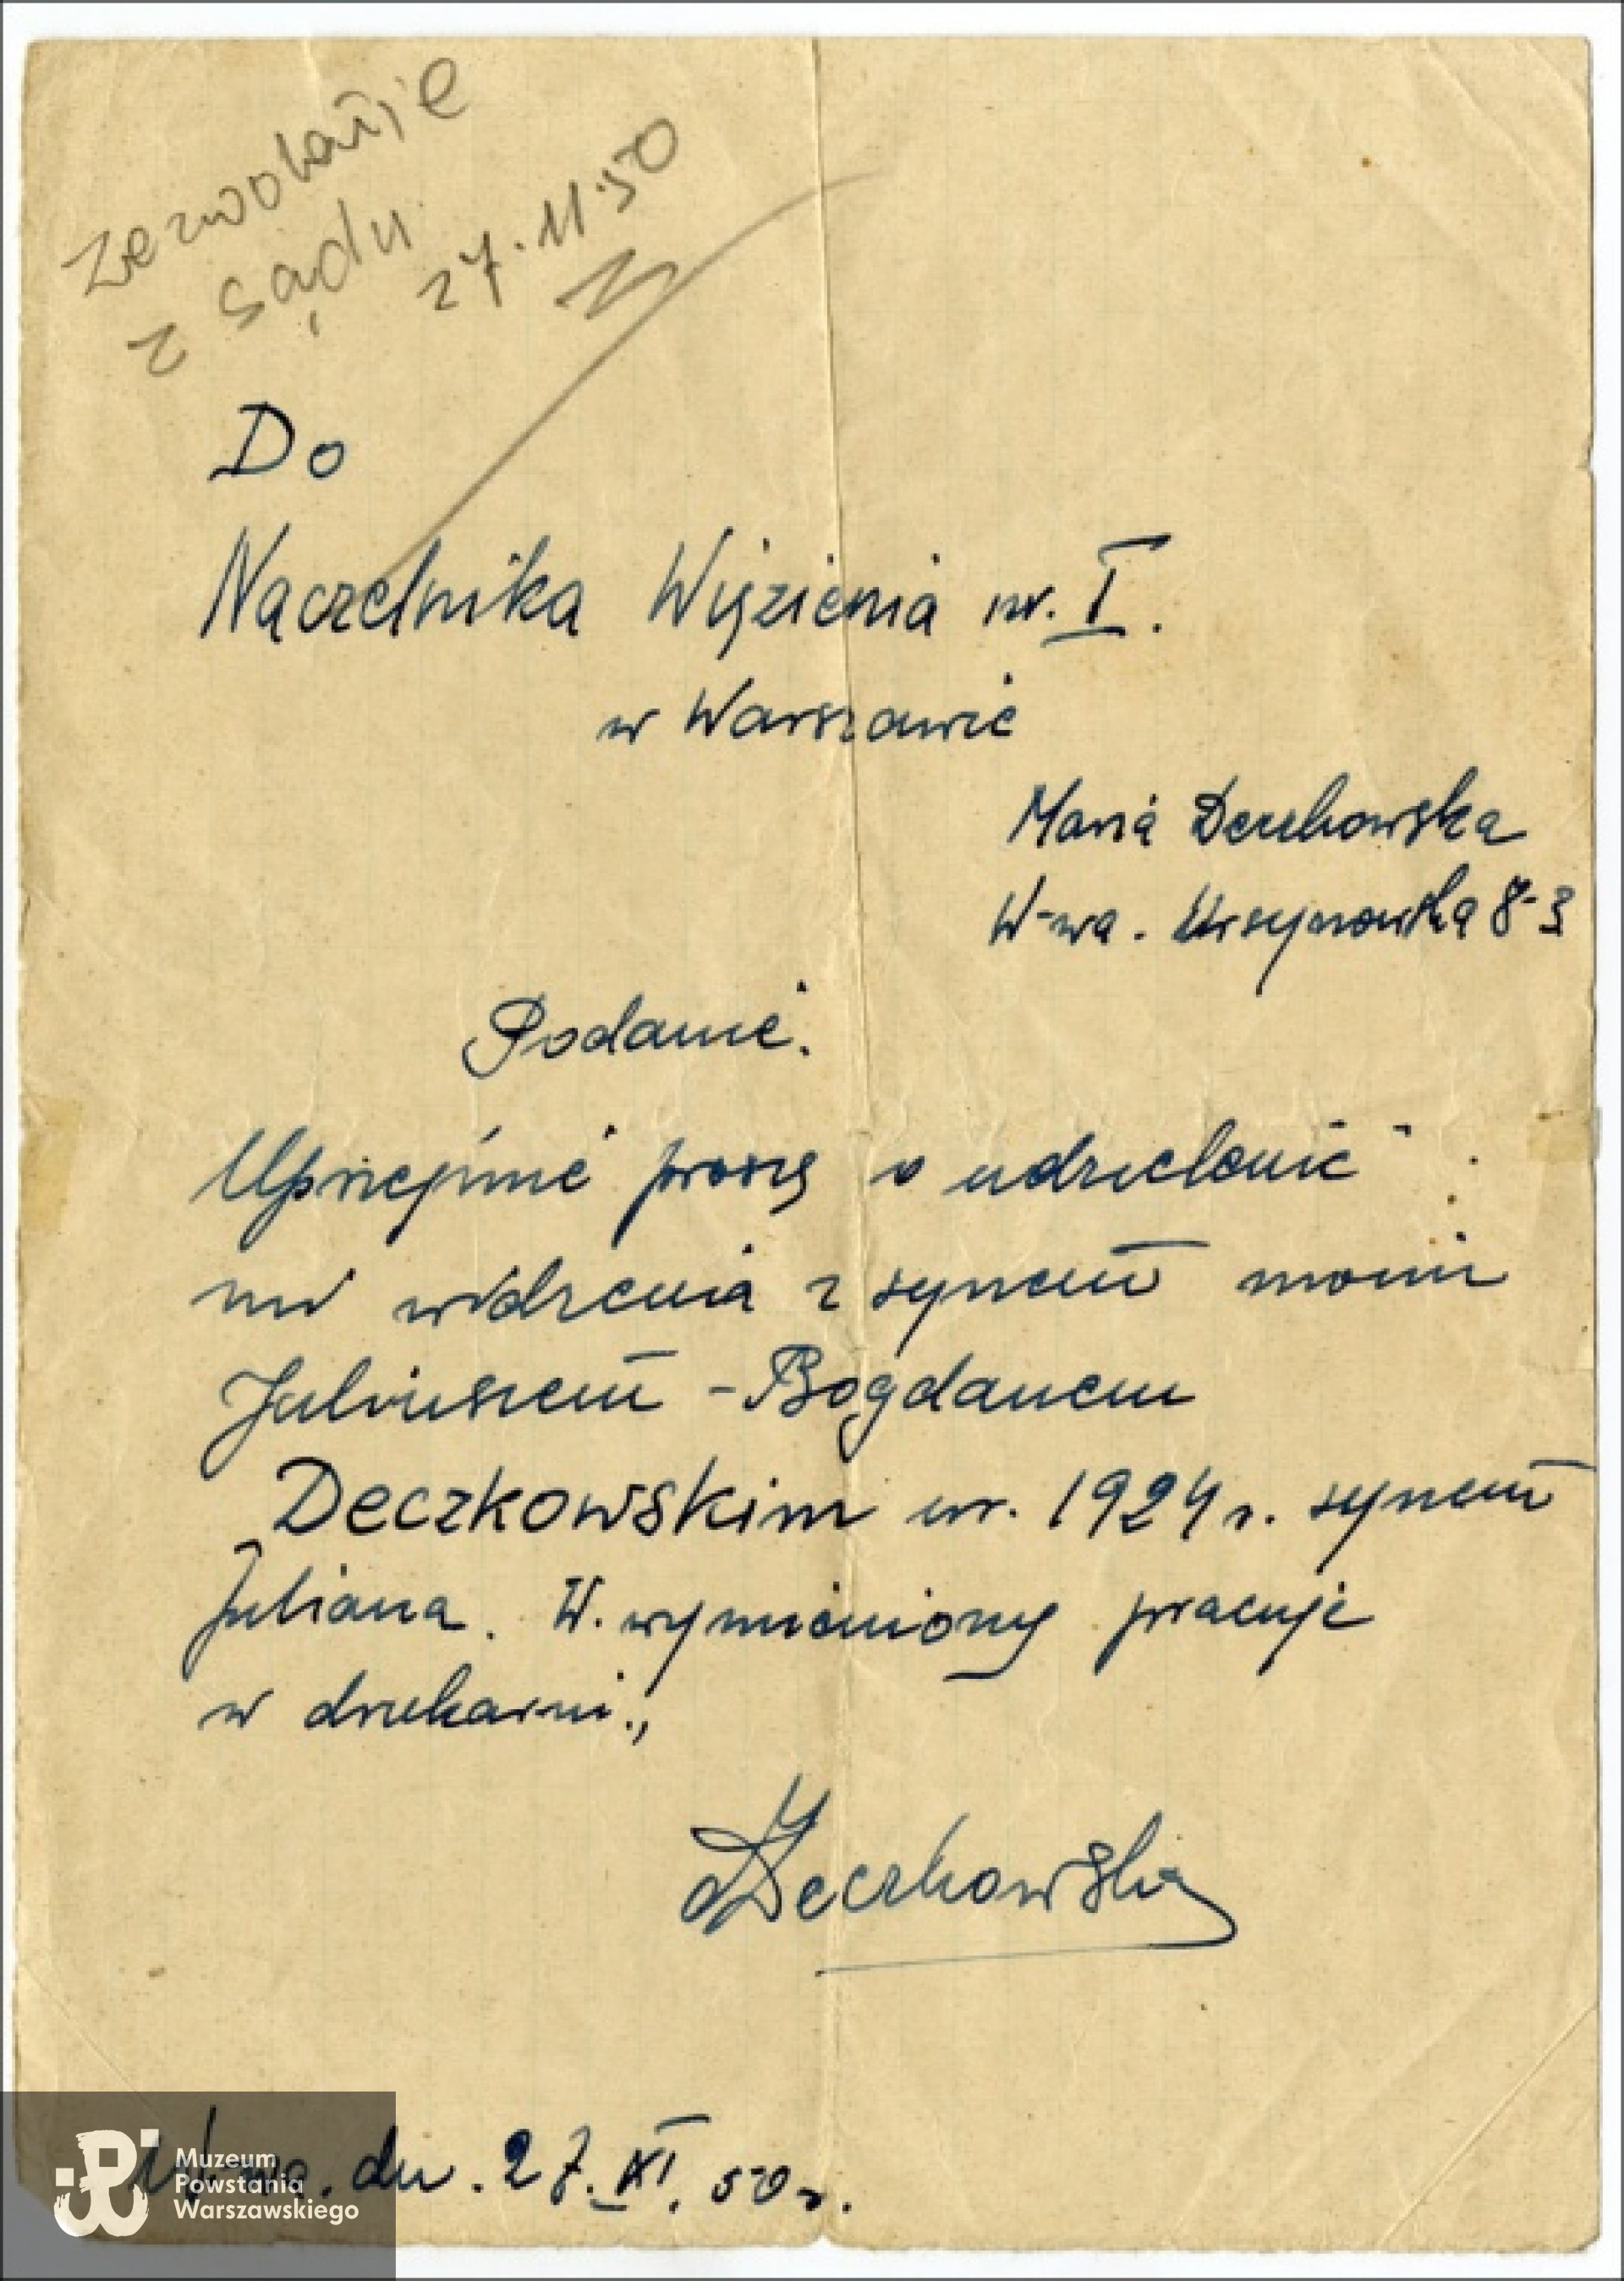 Zezwolenie
z sądu
27.11.50
Do
Naczelnika Więzienia nr. I.
w Warszawie
Maria Deczkowska
W-wa. Ursynowska 8-3
Podanie.
Uprzejmie proszę o udzielenie
mi widzenia z synem moim
Juliuszem - Bogdanem
Deczkowskim ur. 1924 r. synem
Juliana. W. wymieniony pracuje
w drukarni.,
MDeczkowska
W-wa. dn. 27.XI.50 r.
Muzeum
Powstania
Warszawskiego